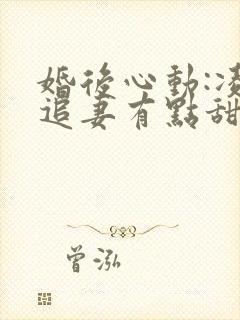 婚後心動:
追妻有點甜
曾泓